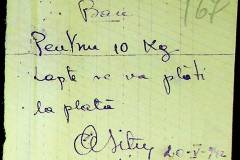 Bon
167
Pentru 10 Kg
Lapte se va plăti
la plată